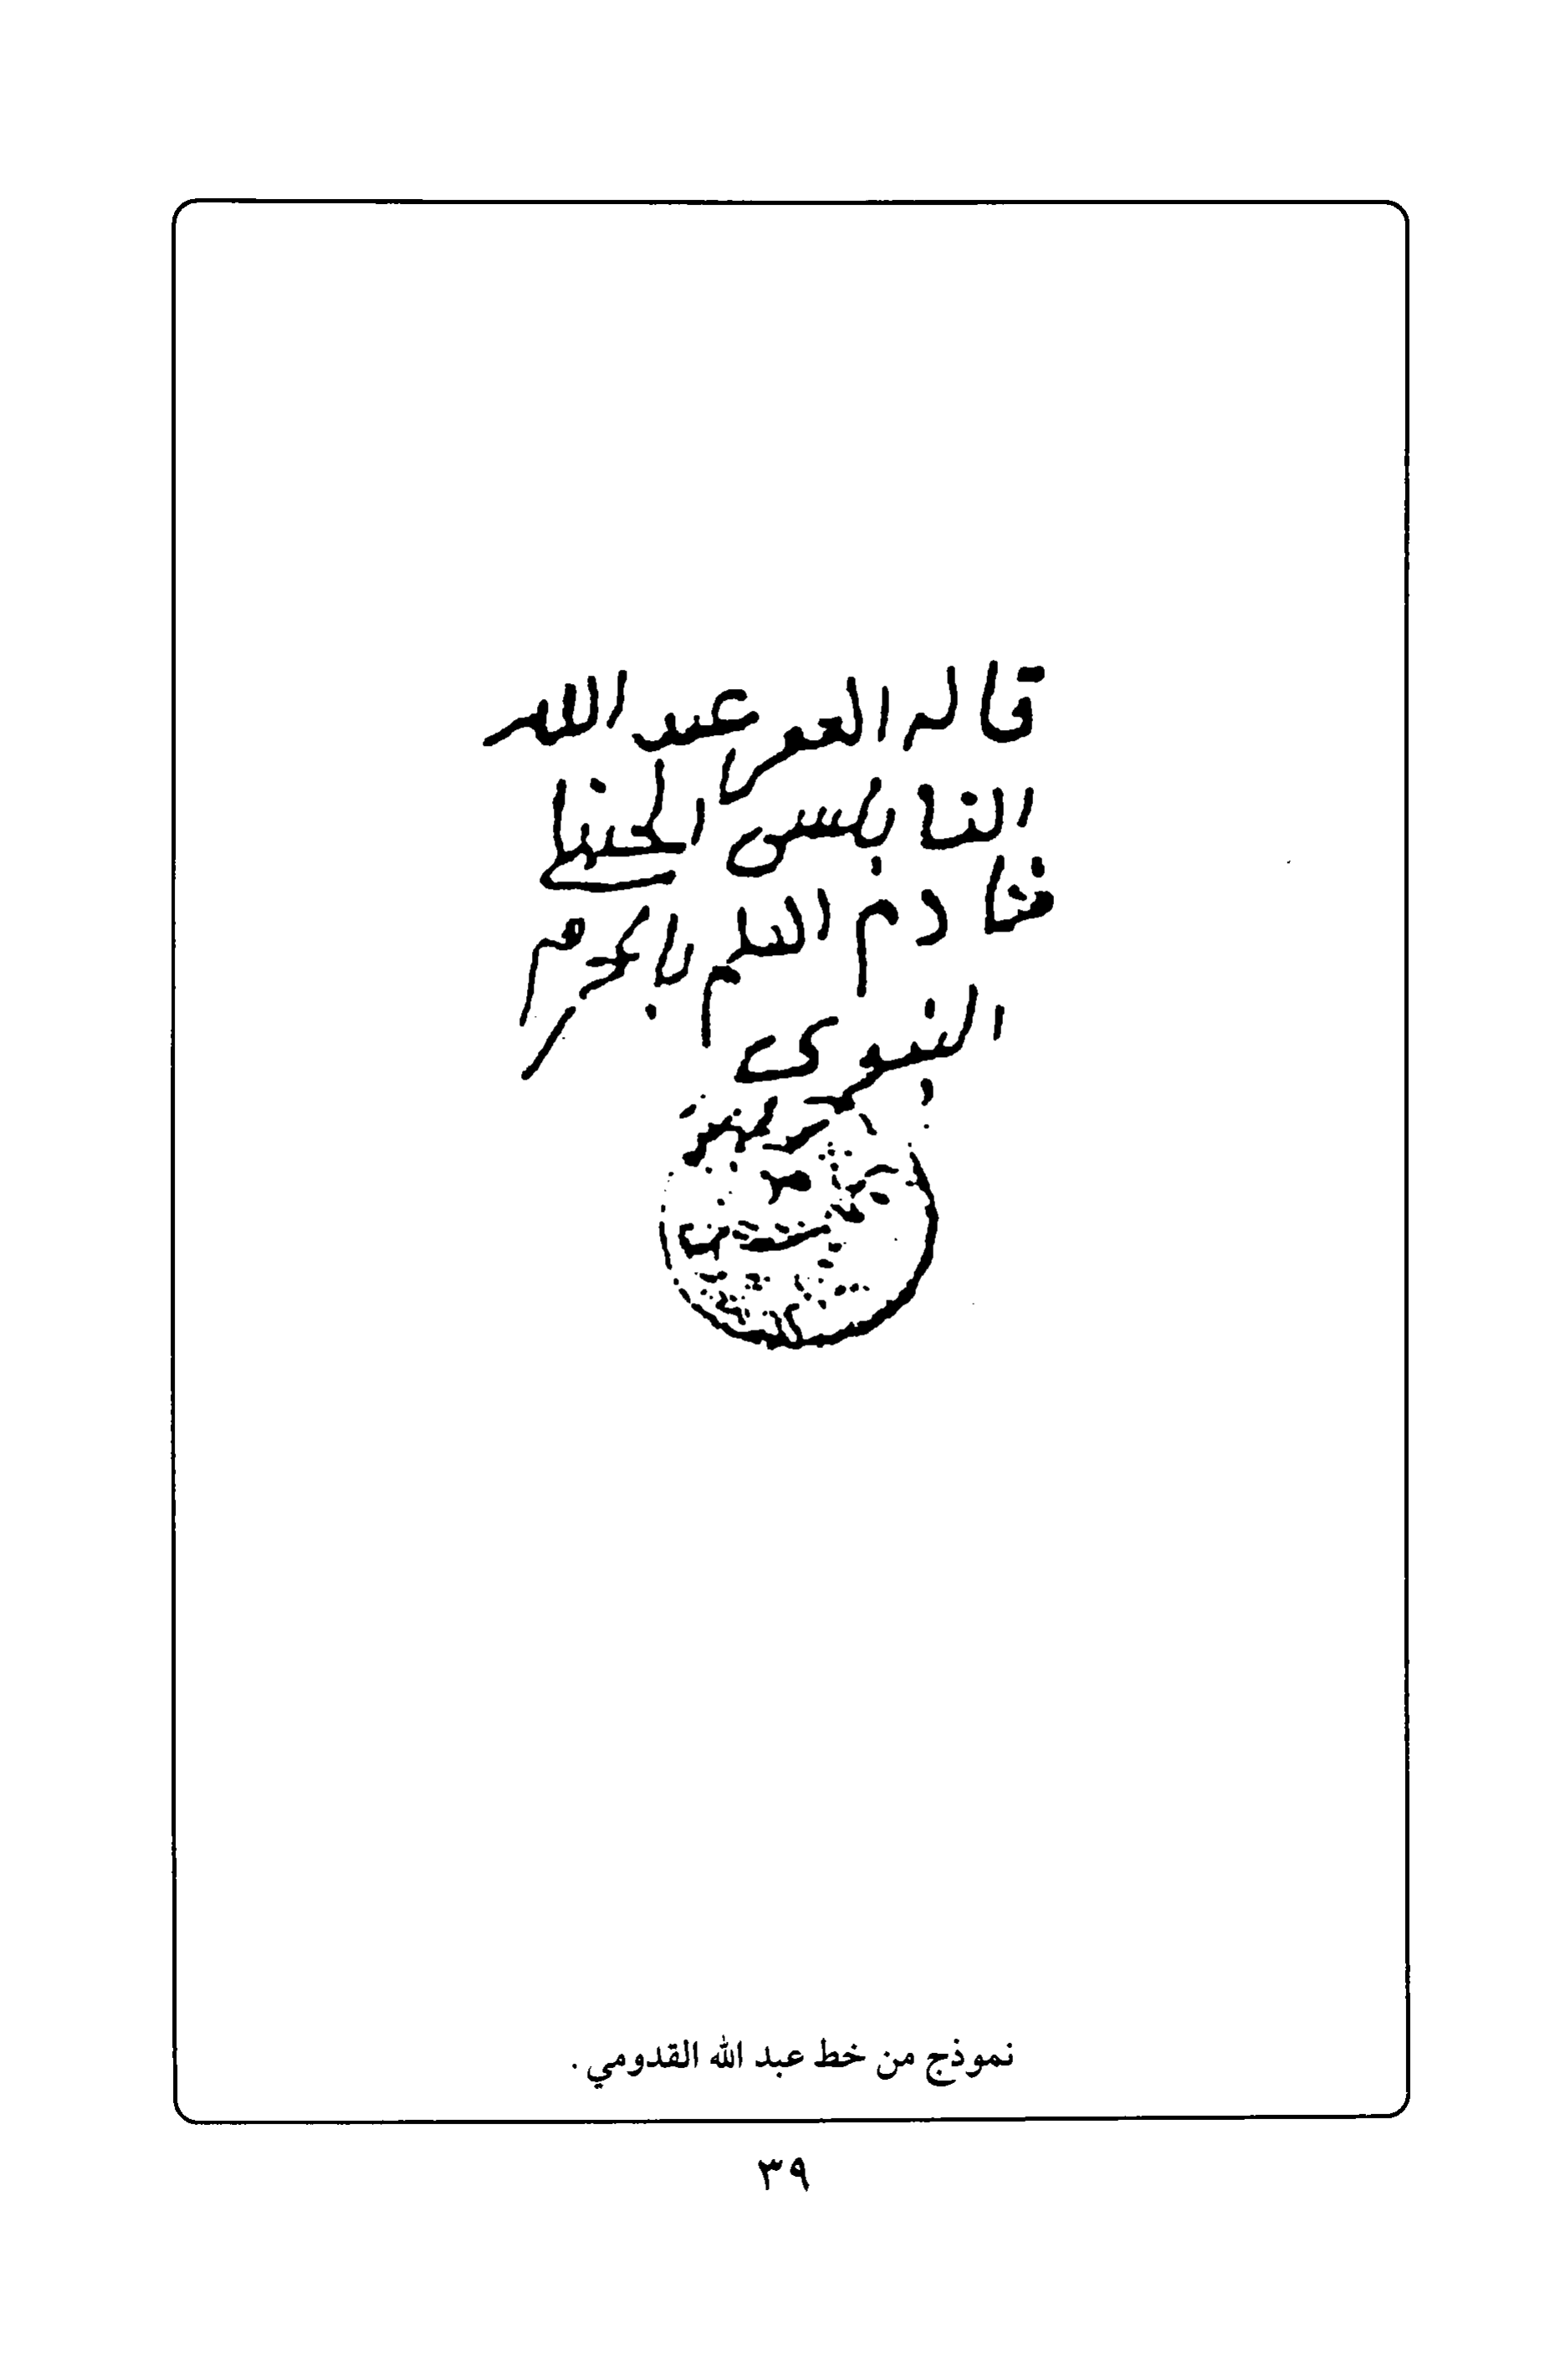 قاله الفقير عبد الله
النابلسي الحنبلي
خادم العلم بالحرم
النبوي
نموذج من خط عبد الله القدومي .
٣٩